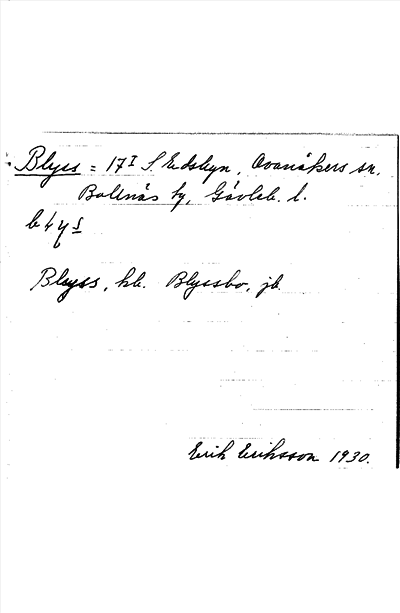 Blyss = 17 I S. Edsbyn, Ovanåkers sn.
Bollnäs tg, Gävleb. l.
Blyss, kb. Blyssbo, jb.
Erik Eriksson 1930.